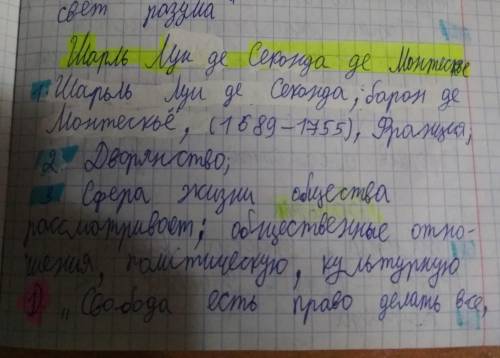 свет разума"
Шарль Луи де Секонда де Монтескье
1. Шарьль Луи де Секонда, барон де
Монтескьё, (1689-1755), Франция,
2. Дворянство;
3 Сфера жизни общества
рассматривает; общественные отно-
шения, политическую, культурную
D „Свобода есть право делать все,